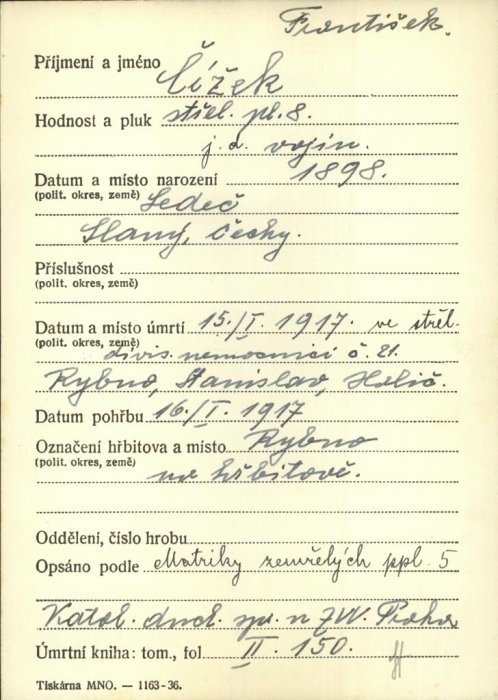 František.
Příjmení a jméno Čížek
Hodnost a pluk střel. pl. 8.
j. d. vojín.
Datum a místo narození 1898.
(polit. okres, země) Ledeč
Slaný, Čechy.
Příslušnost
(polit. okres, země)
Datum a místo úmrtí 15./I. 1917. ve střel.
(polit. okres, země) divis. nemocnici č. 21.
Rybno, Stanislav, Halič.
Datum pohřbu 16./I. 1917
Označení hřbitova a místo Rybno
(polit. okres, země) na hřbitově.
Oddělení, číslo hrobu
Opsáno podle Matriky zemřelých ppl. 5
Katol. duch. spr. n ZV. Praha
Úmrtní kniha: tom., fol. II. 150.
Tiskárna MNO. — 1163-36.